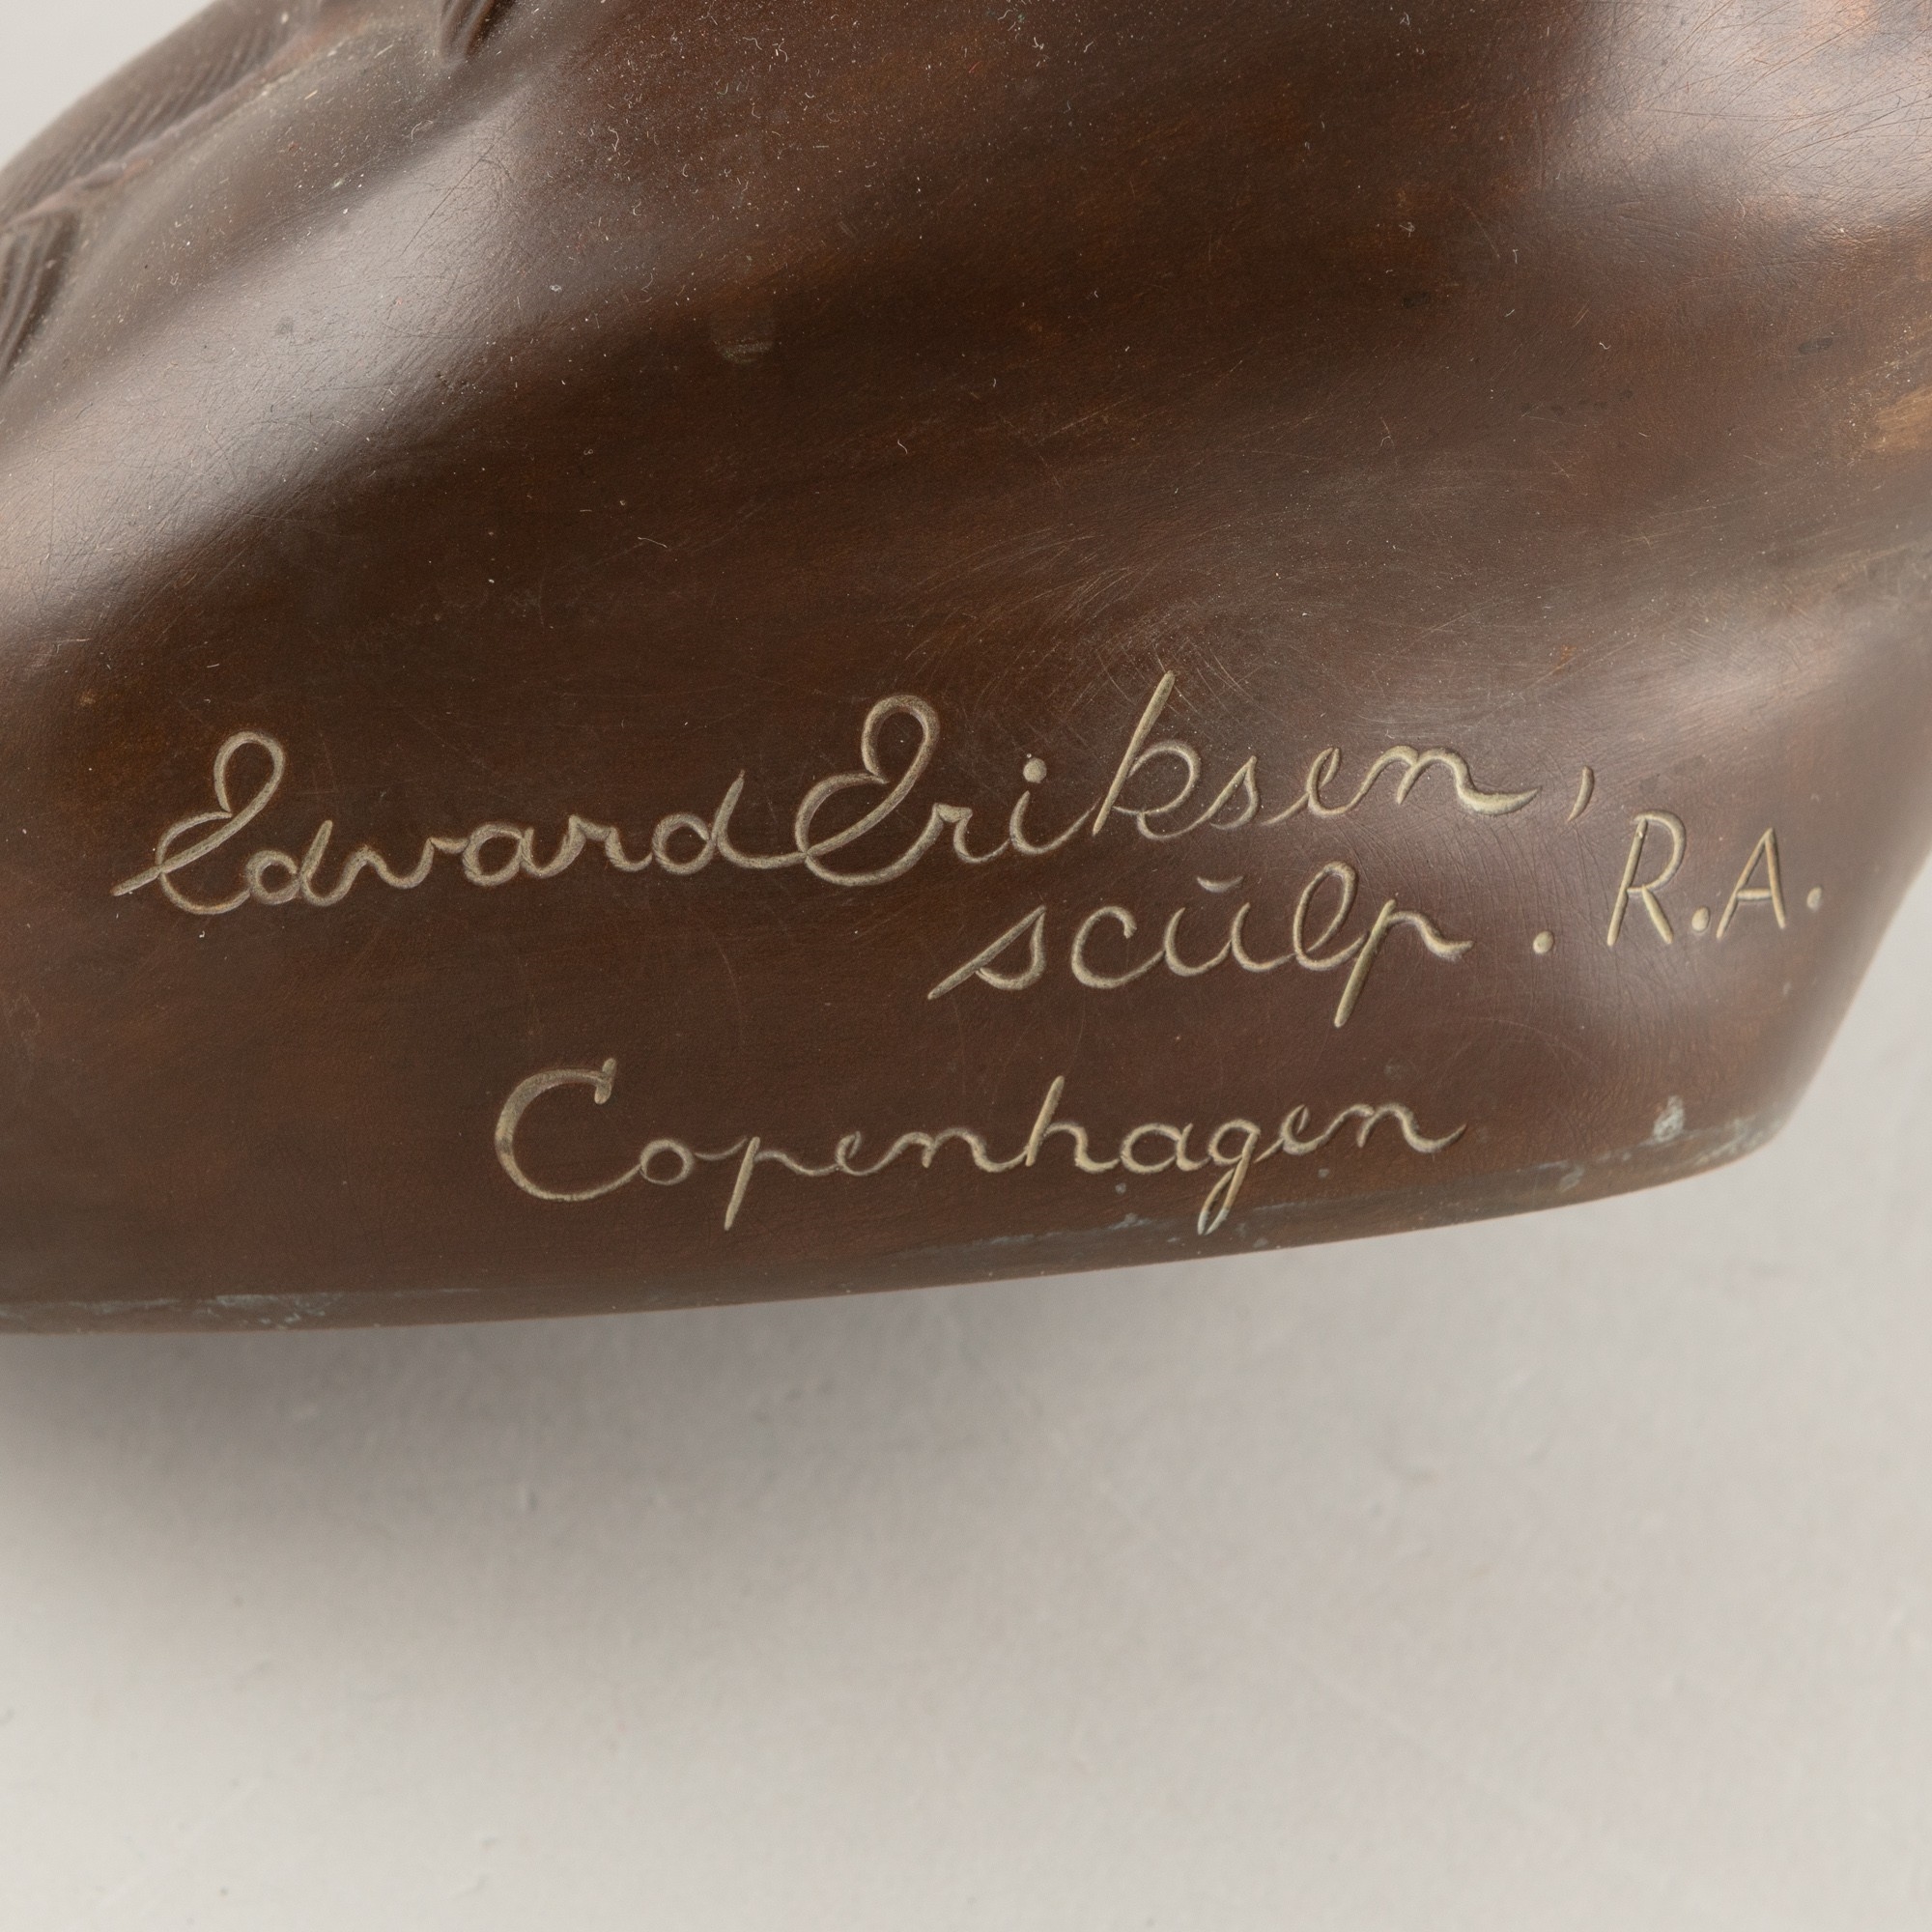 Edvard Eriksen,
scŭlp. R.A.
Copenhagen